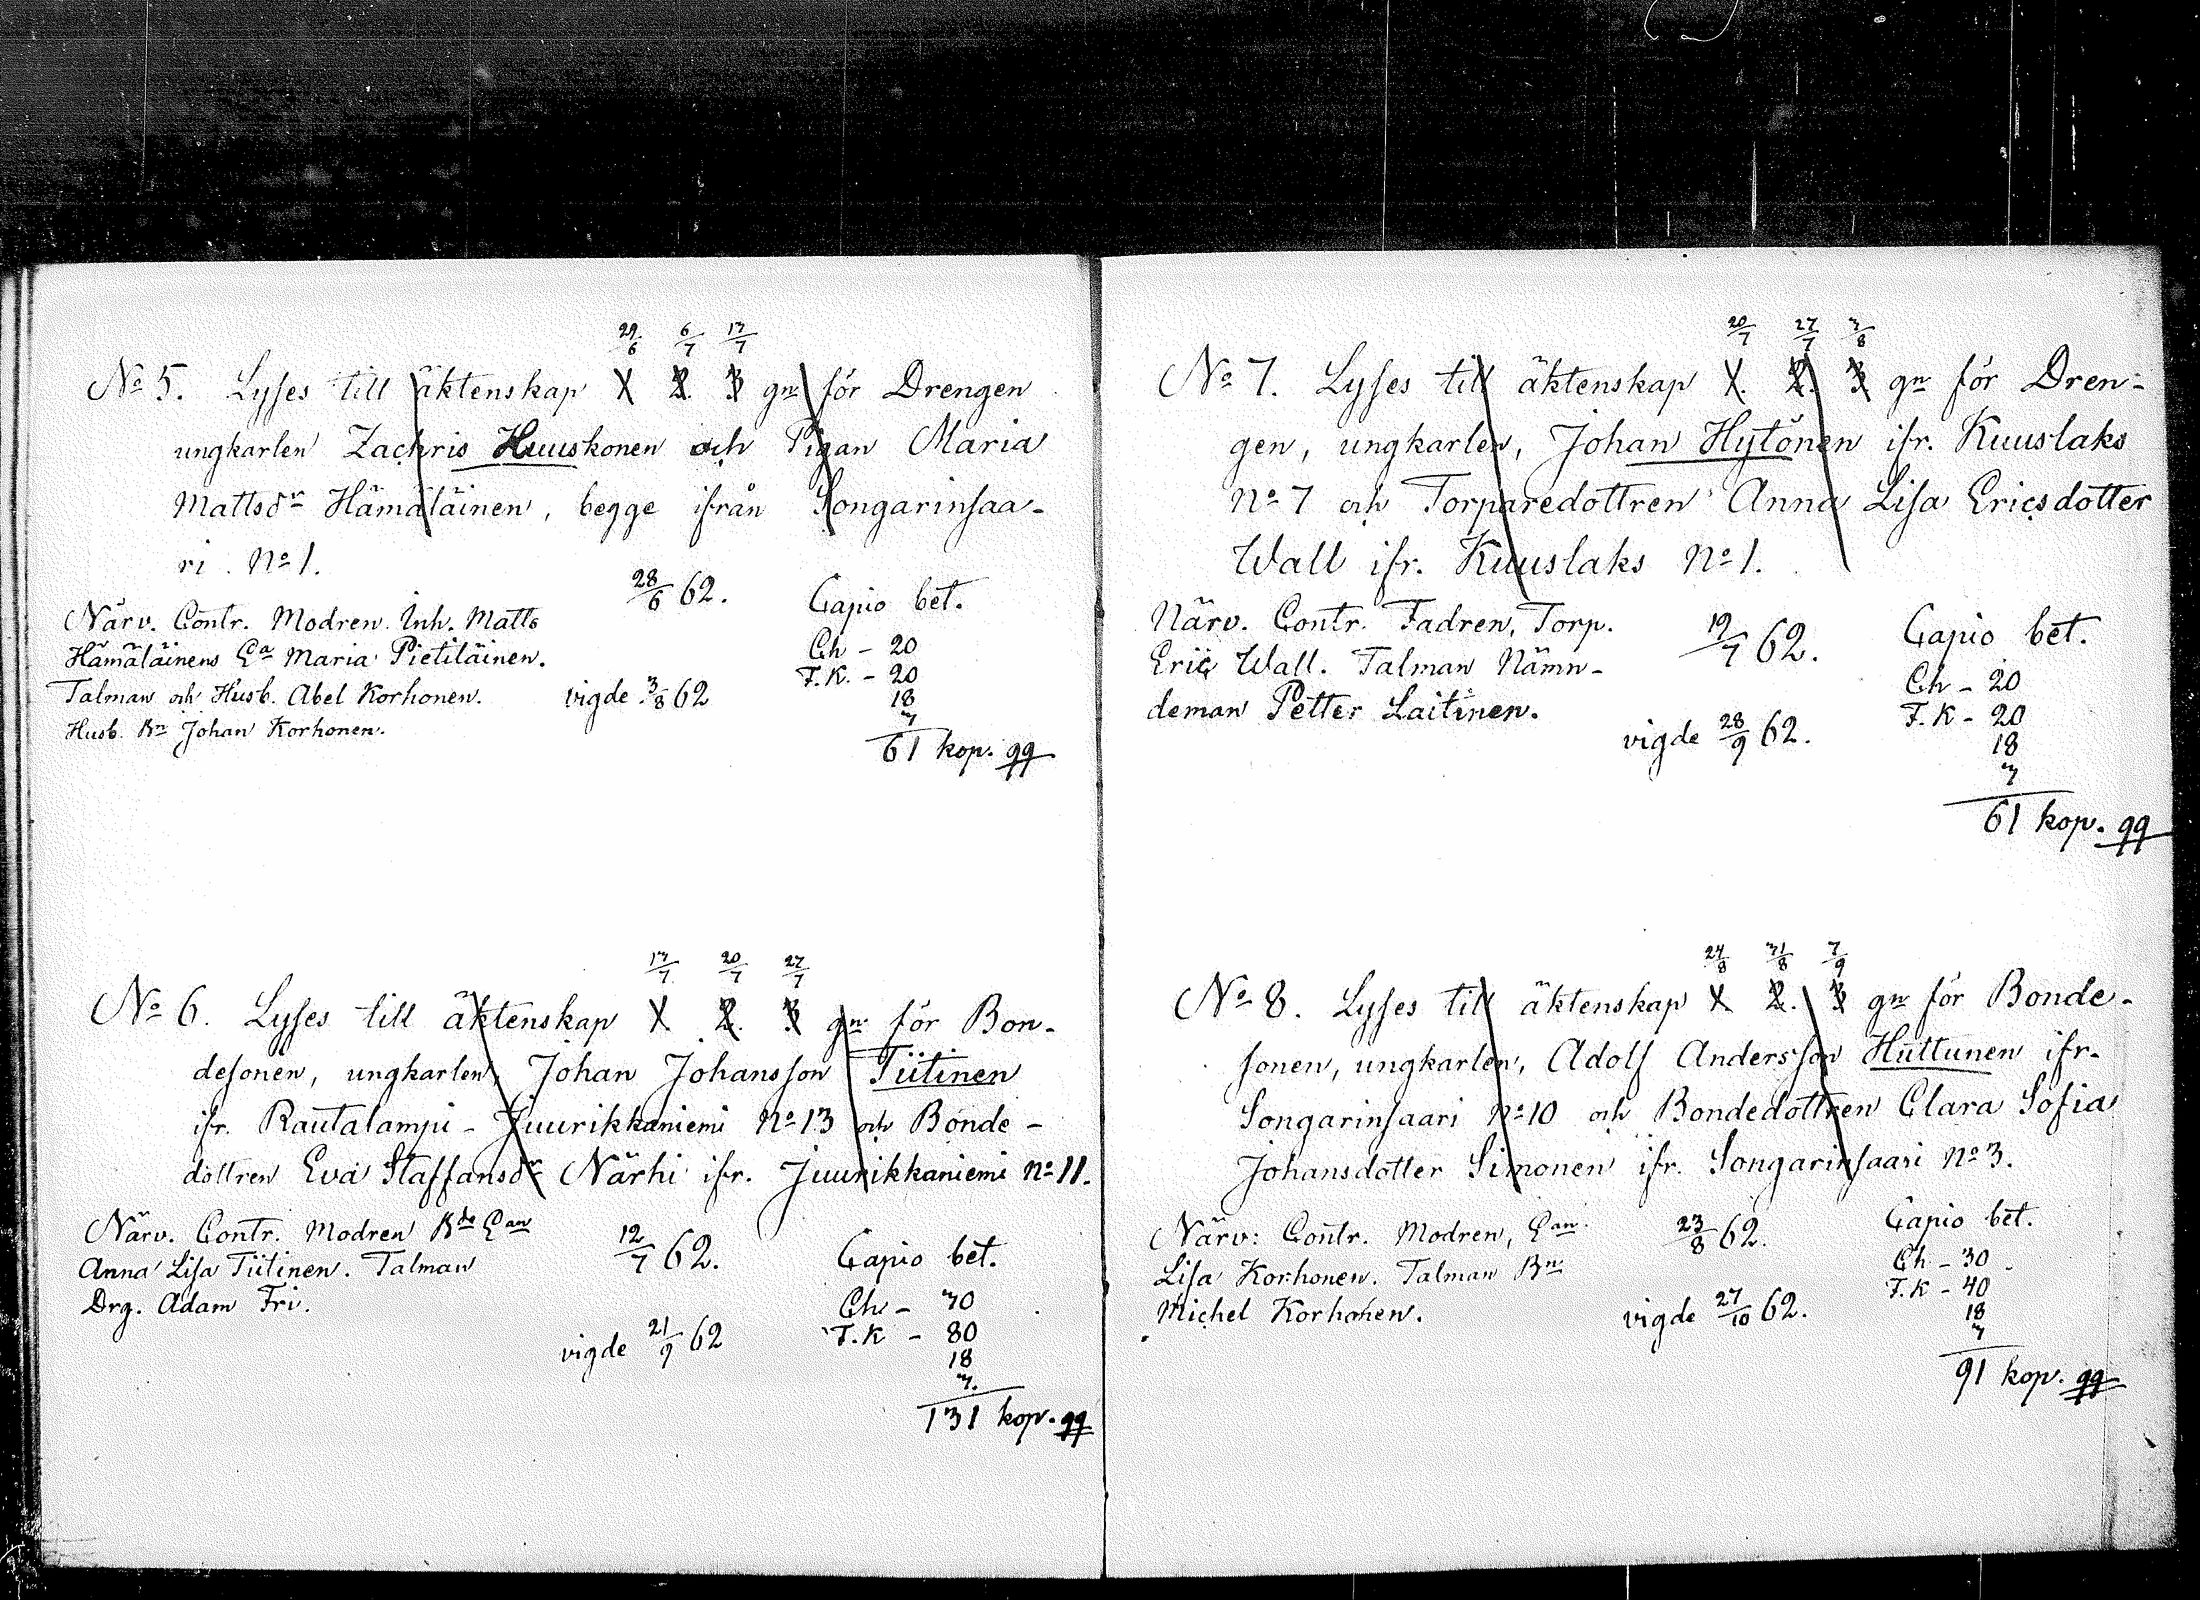 29/6 6/7 13/7
No 5. Lyses till äktenskap 1 2. 3 gn för Drengen
ungkarlen Zachris Huuskonen och Pigan Maria
Mattsdr Hämäläinen, begge ifrån Songarinsaa-
ri. No 1.
28/6 62.
Närv. Contr. Modren Inh. Matts
Hämäläinens Ea Maria Pietiläinen.
Talman och Husb. Abel Korhonen.
Husb. Bn Johan Korhonen.
vigde 3/8 62
Capio bet.
Ch - 20
F.K. - 20
18
3
61 kop.
13/7 20/7 27/7
No 6. Lyses till äktenskap 1 2. 3 gn för Bon-
desonen, ungkarlen, Johan Johansson Tiitinen
ifr. Rautalampi - Juurikkaniemi No 13 och Bonde-
dottren Eva Staffansdr Närhi ifr. Juurikkaniemi No 11.
Närv. Contr. Modren Bde Ean
Anna Lisa Tiitinen. Talman
Drg. Adam Fri.
12/7 62.
vigde 21/9 62
Capio bet.
Ch - 30
F.K - 80
18
3.
131 kop.
20/7 27/7 3/8
No 7. Lyses till äktenskap 1. 2. 3 gn för Dren-
gen, ungkarlen, Johan Hytönen ifr. Kuuslaks
No 7 och Torparedottren Anna Lisa Ericsdotter
Wall ifr. Kuuslaks No 1.
Närv. Contr. Fadren, Torp.
Eric Wall. Talman Nämn-
deman Petter Laitinen.
19/7 62.
vigde 28/9 62.
Capio bet.
Ch - 20
F.K - 20
18
3
61 kop.
24/8 31/8 7/9
No 8. Lyses till äktenskap 1 2. 3 gn för Bonde-
sonen, ungkarlen, Adolf Andersson Huttunen ifr.
Songarinsaari No 10 och Bondedottren Clara Sofia
Johansdotter Simonen ifr. Songarinsaari No 3.
Närv: Contr. Modren, Ean
Lisa Korhonen. Talman Bn
Michel Korhonen.
23/8 62.
vigde 27/10 62.
Capio bet.
Ch - 30
F.K - 40
18
3
91 kop.